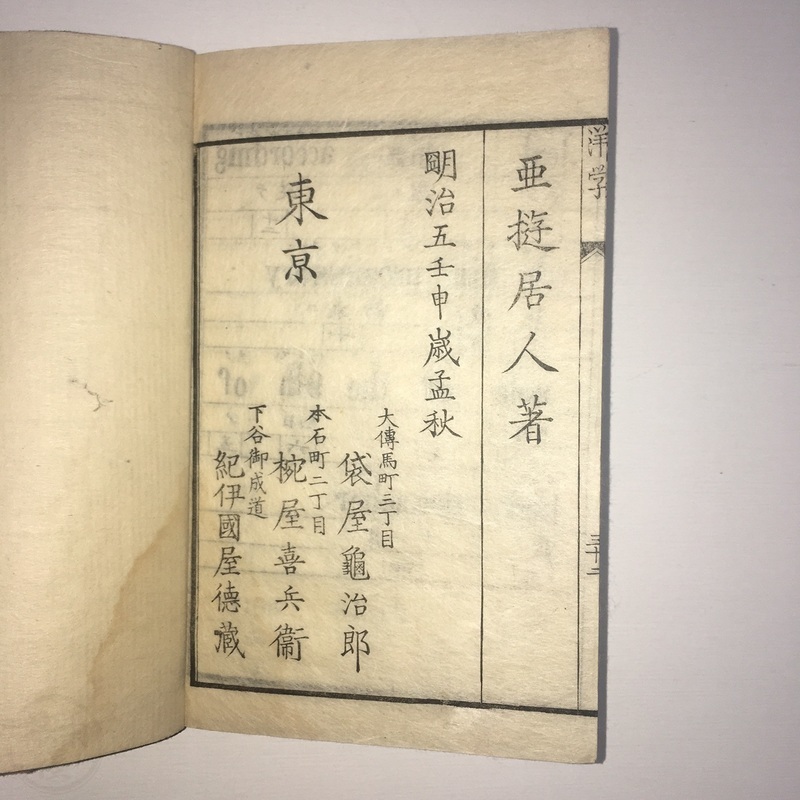 洋学
三十二
亜遊居人著
明治五壬申歳孟秋
東京
大傳馬町三丁目
袋屋龜治郎
本石町二丁目
椀屋喜兵衞
下谷御成道
紀伊國屋德蔵
according
the 9th of